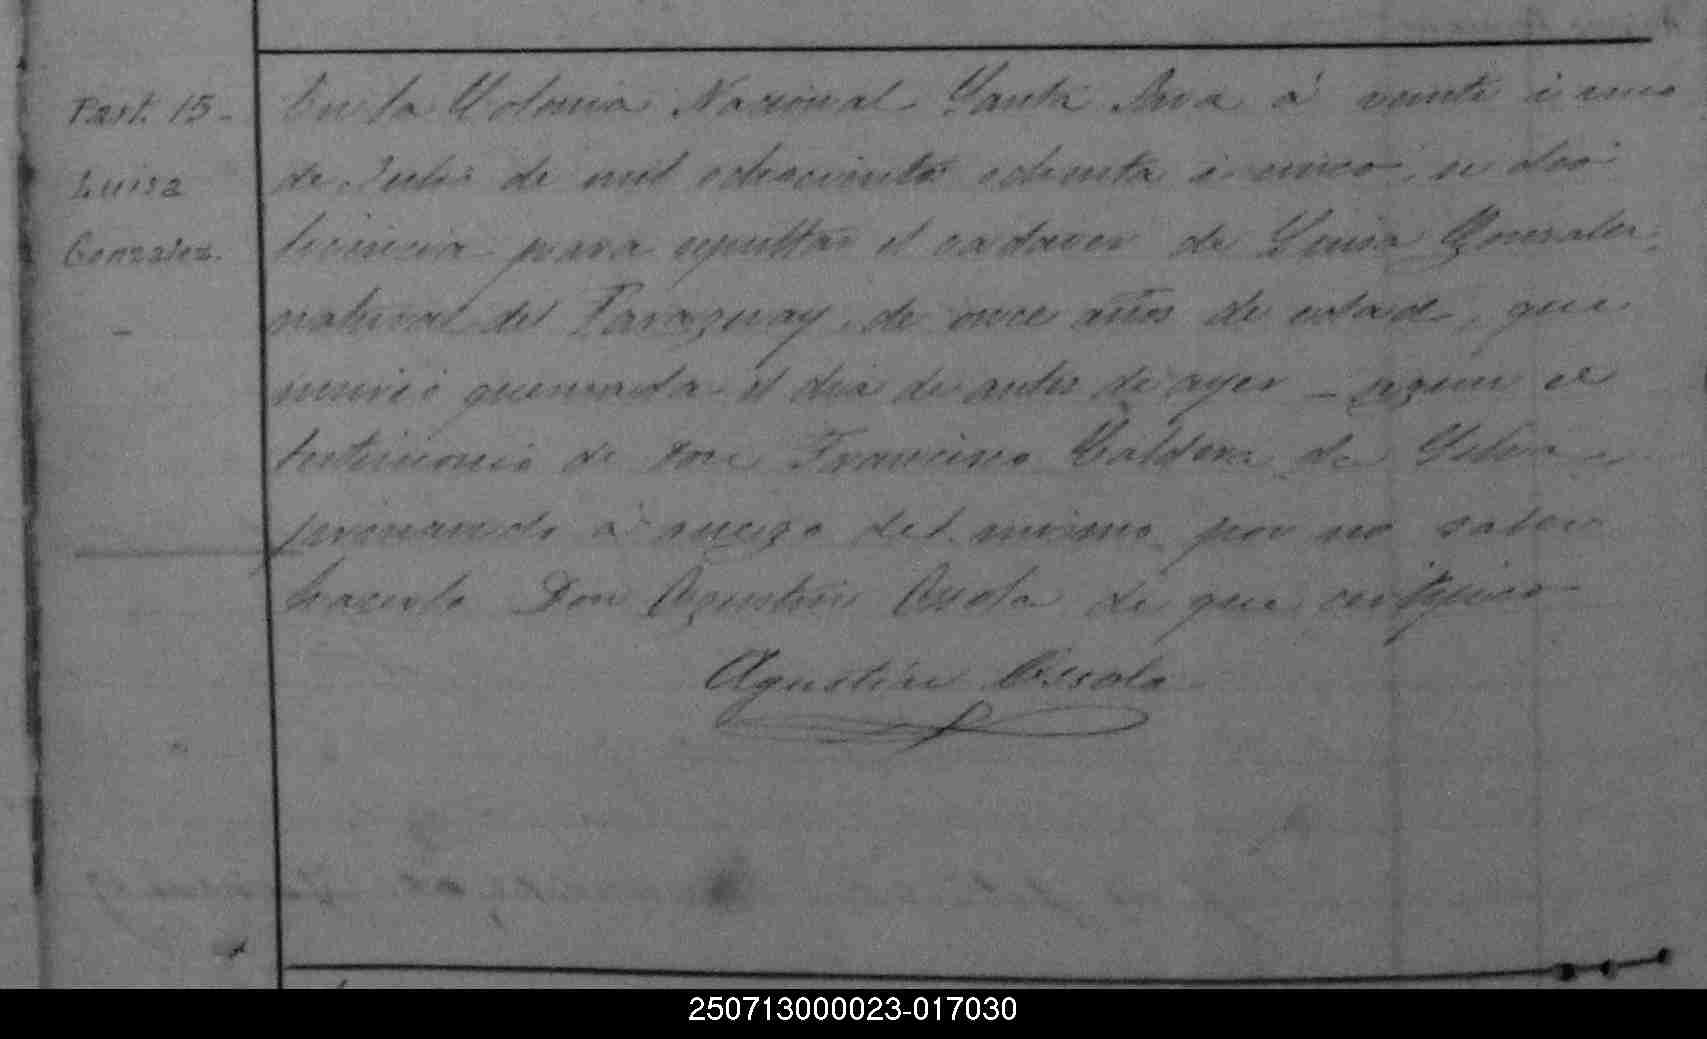 Part. 15-
Luisa
Gonzalez.
En la Colonia Nacional Santa Ana á veinte i cinco
de Julio de mil ochocientos ochenta i cinco, se dió
licencia para sepultar el cadaver de Luisa Gonzalez,
natural del Paraguay, de once años de edad, que
murió quemada el dia de antes de ayer - segun el
testimonio de Don Francisco Caldera da Silva
firmando á ruego del mismo por no saber
hacerlo Don Agustin Ossola de que certifico
Agustin Ossola
250713000023-017030